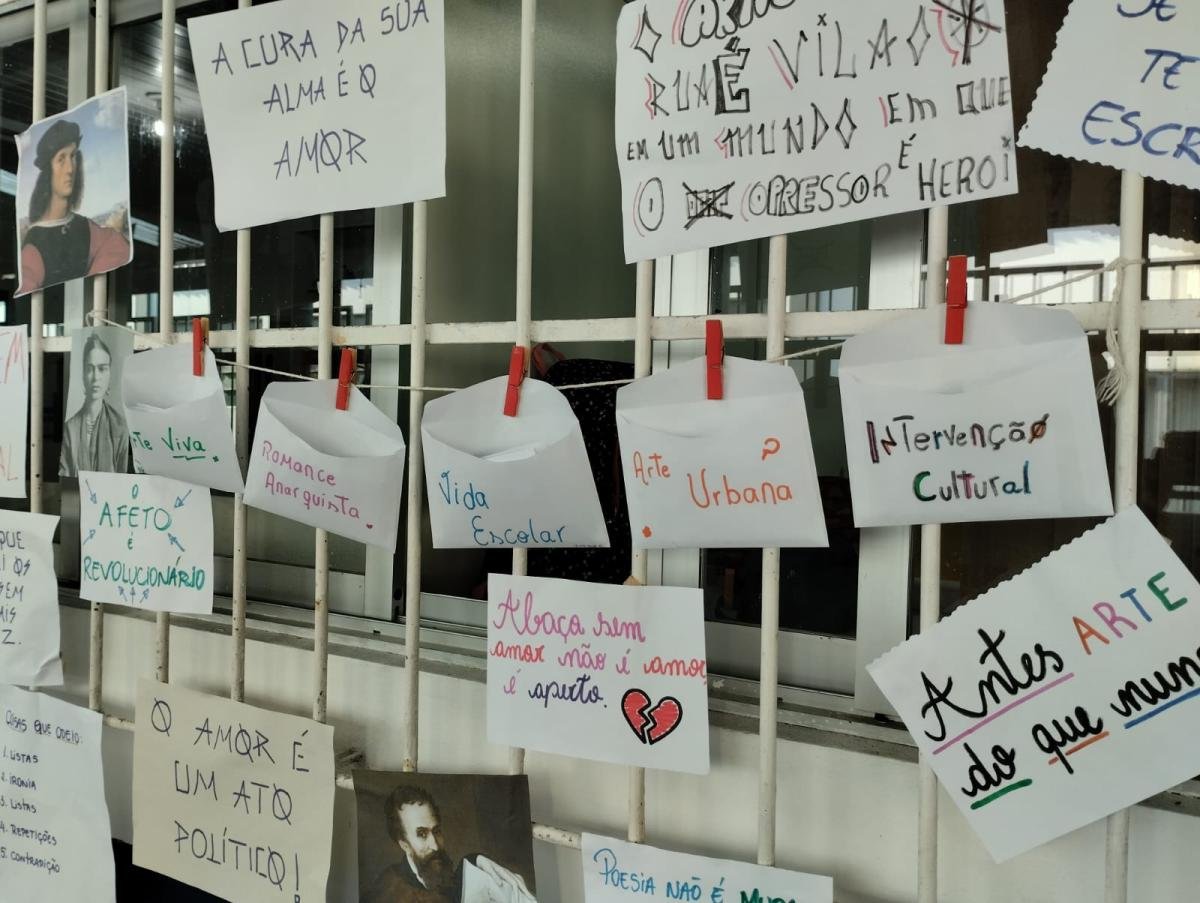 A CURA DA SUA
ALMA É O
AMOR
O
RUA É VILÃO
EM UM MUNDO EM QUE
O OPRESSOR É HEROI
SE
TE
ESCR
Viva.
Romance
Anarquista.
Vida
Escolar
Arte
Urbana
INTervenção
Cultural
O
AFETO
é
REVOLUCIONÁRIO
Abaço sem
amor não é amor,
é aperto.
Antes ARTE
do que nun
QUE
OS
SEM
AIS
Z.
COISAS QUE ODEIO:
1. LISTAS
2. IRONIA
3. LISTAS
4. REPETIÇÕES
5. CONTRADIÇÃO
O AMOR É
UM ATO
POLÍTICO!
POESIA NÃO É